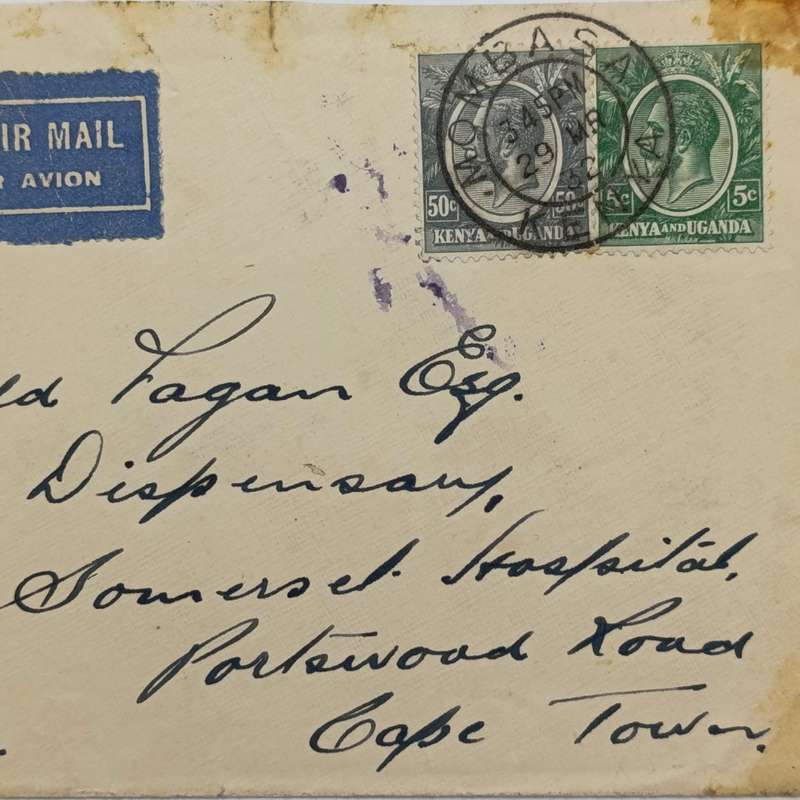 IR MAIL
R AVION
MOMBASA
345PM
29 MR
32
KENYA
50c 50c
KENYA AND UGANDA
5c 5c
KENYA AND UGANDA
ld Fagan Esq.
Dispensary,
Somerset Hospital,
Portswood Road
Cape Town.